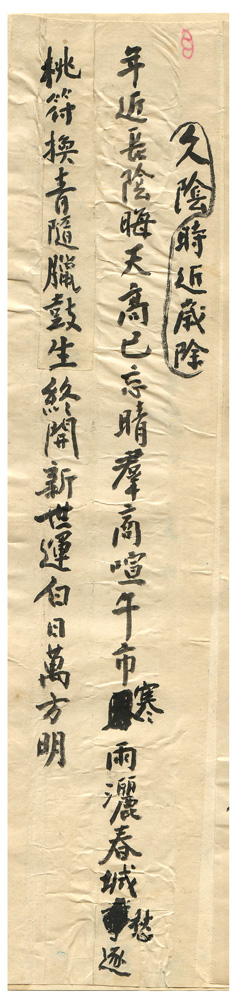 久陰時近歲除
年近長陰晦天高已忘晴羣商喧午市寒雨灑春城愁逐
桃符換青隨臘鼓生終開新世運白日萬方明